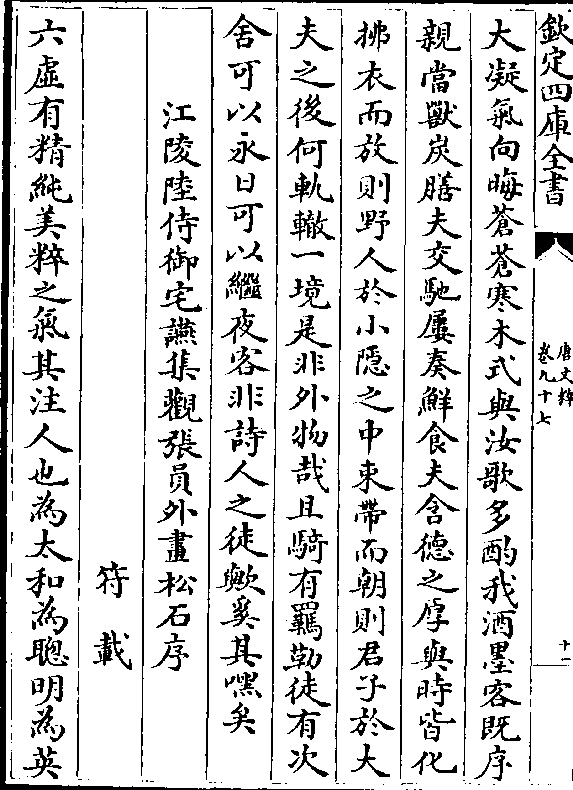 欽定四庫全書
唐文粹
卷九十七
十一
大凝氣向晦蒼蒼寒木式與汝歌多酌我酒墨客既序
親當獸炭膳夫交馳屢奏鮮食夫含德之厚與時皆化
拂衣而放則野人於小隱之中束帶而朝則君子於大
夫之後何軌轍一境是非外物哉且騎有羈勒徒有次
舍可以永日可以繼夜客非詩人之徒歟奚其嘿矣
江陵陸侍御宅讌集觀張員外畫松石序
符載
六虛有精純美粹之氣其注人也為太和為聰明為英